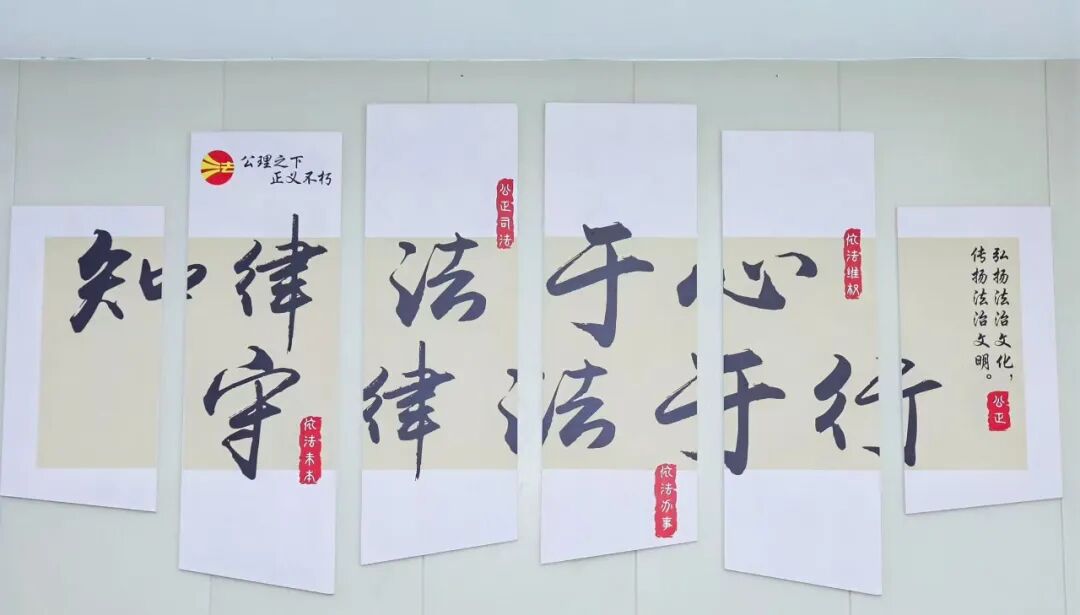 公理之下
正义不朽
知律法于心
守律法于行
公正司法
依法维权
依法未本
依法办事
弘扬法治文化，
传扬法治文明。
公正